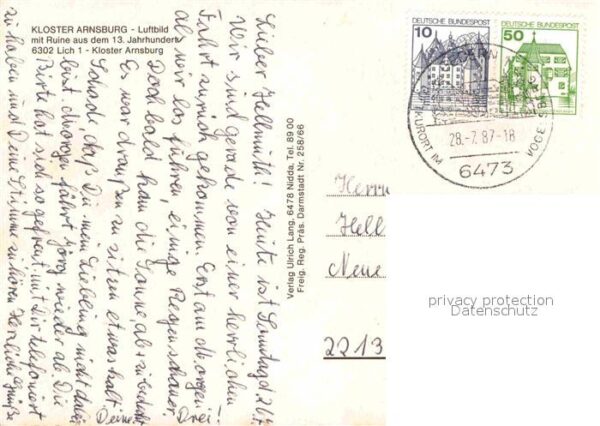 KLOSTER ARNSBURG - Luftbild
mit Ruine aus dem 13. Jahrhundert
6302 Lich 1 - Kloster Arnsburg
Lieber Hellmuth! Heute ist Sonntag d. 26.7.
Wir sind gerade von einer herrlichen
Fahrt zurück gekommen. Erst am Morgen
als wir los fuhren, einige Regenschauer.
Doch bald kam die Sonne, ab + zu bedeckt
Es war draußen zu sitzen etwas kalt.
Schade, daß Du mein Liebling nicht dabei
bist. Morgen fährt Jörg wieder ab. Die
Birte hat sich so gefreut, mit Dir telefoniert
zu haben und Deine Stimme zu hören. Herzliche Grüße
Deine Drei!
Verlag Ulrich Lang, 6478 Nidda, Tel. 89 00
Freig. Reg. Präs. Darmstadt Nr. 258/66
DEUTSCHE BUNDESPOST
10
DEUTSCHE BUNDESPOST
50
28.-7.87-18
KURORT IM
6473
Herrn
Hell
Neue
2213
privacy protection
Datenschutz